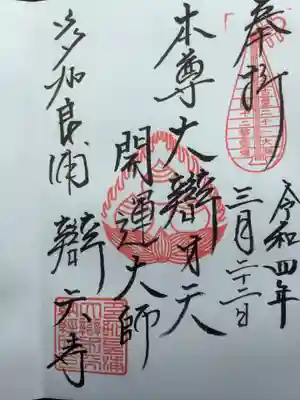 奉拝
令和四年
三月二十二日
本尊大辯才天
開運大師
多加良浦 辯天寺